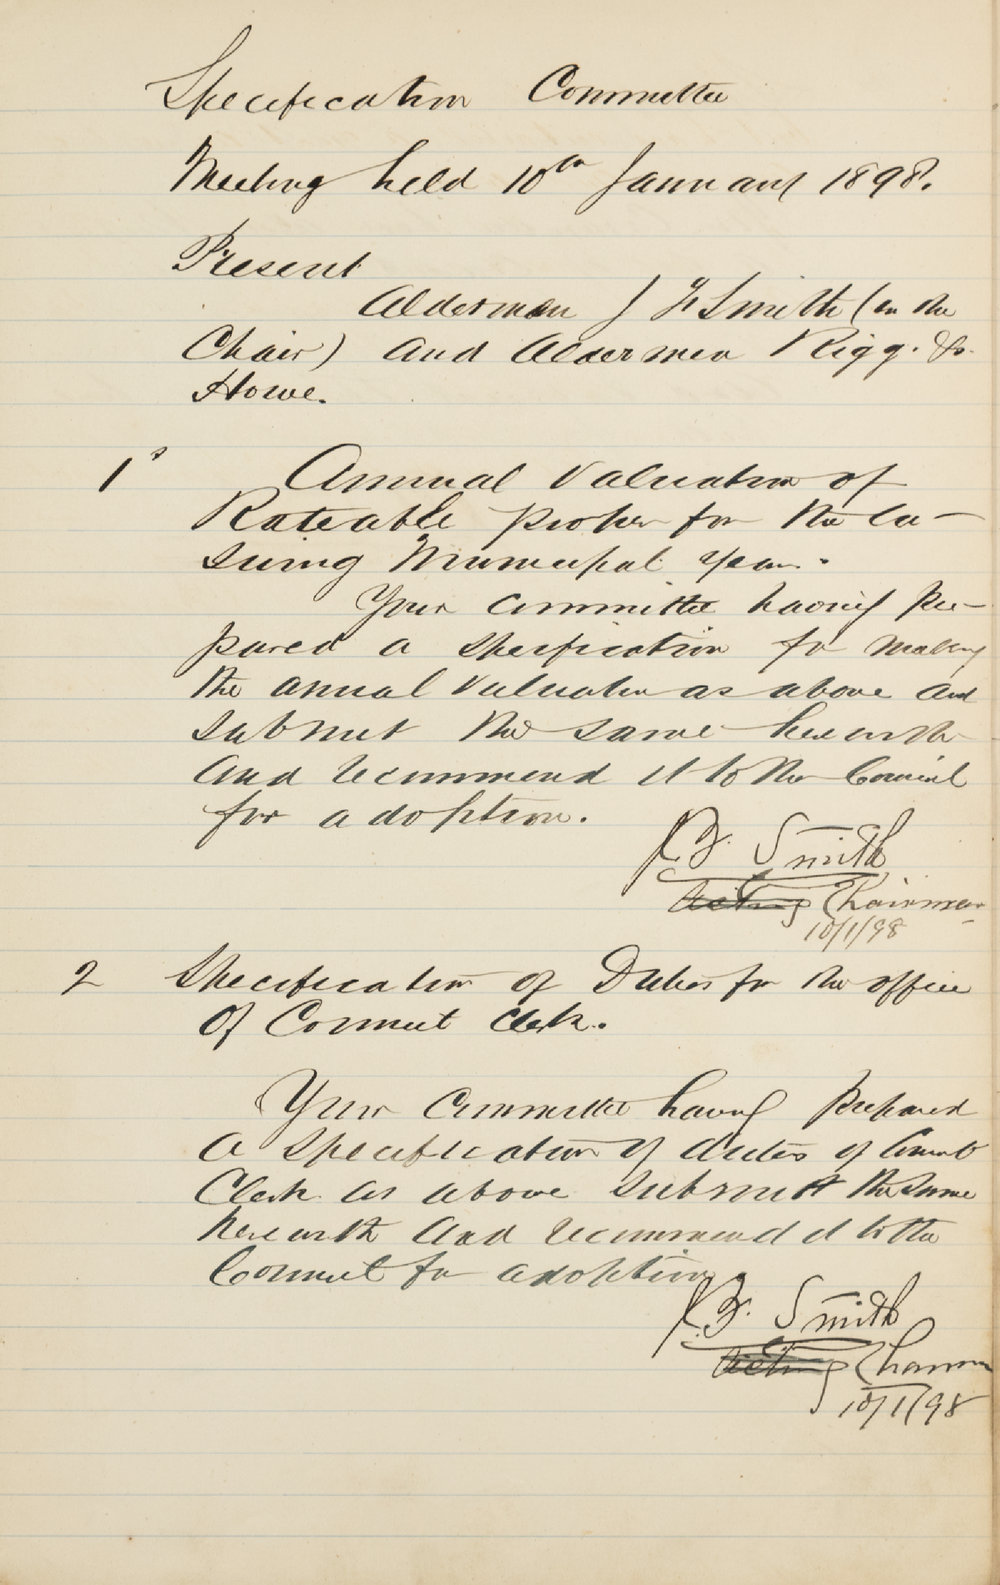 Specification Committee
Meeting held 10th January 1898.
Present
Alderman J F Smith (in the
Chair) and Aldermen Rigg. &
Howe.
1 Annual Valuation of
Rateable proper for the en-
suing Municipal year.
Your committee having pre-
pared a specification for making
the annual valuation as above and
submit the same herewith
and recommend it to the Council
for adoption.
J.F. Smith
Acting Chairman
10/1/98
2 Specification of Duties for the office
of Council Clerk.
Your Committee having prepared
a specification of duties of Council
Clerk as above submit the same
herewith and recommend it to the
Council for adoption.
J.F. Smith
Acting Chairman
10/1/98